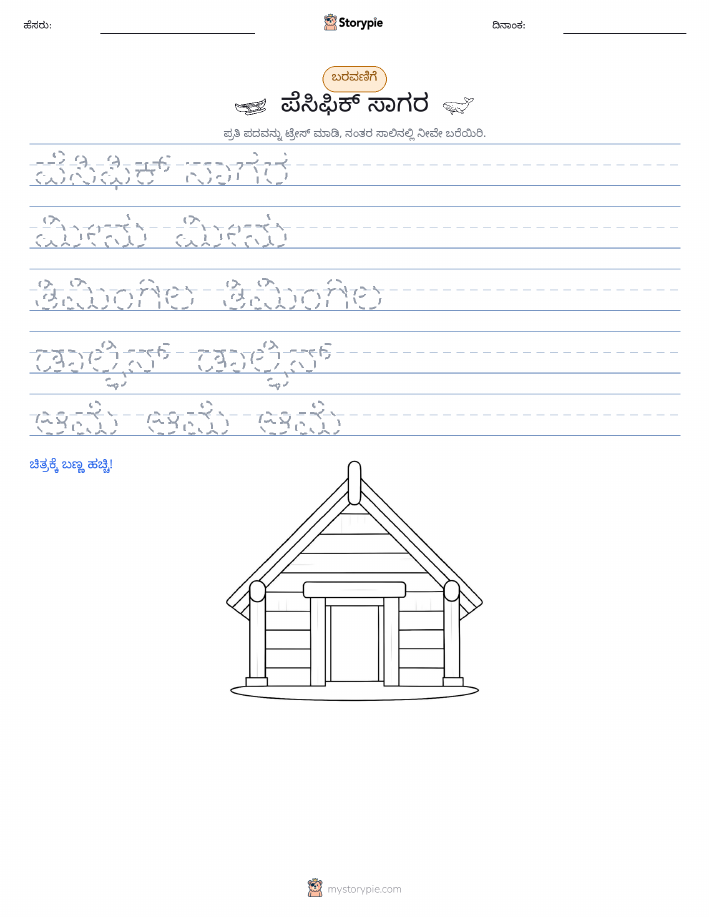 ಹೆಸರು:
Storypie
ದಿನಾಂಕ:
ಬರವಣಿಗೆ
ಪೆಸಿಫಿಕ್ ಸಾಗರ
ಪ್ರತಿ ಪದವನ್ನು ಟ್ರೇಸ್ ಮಾಡಿ, ನಂತರ ಸಾಲಿನಲ್ಲಿ ನೀವೇ ಬರೆಯಿರಿ.
ಪೆಸಿಫಿಕ್ ಸಾಗರ
ಮೀನು ಮೀನು
ತಿಮಿಂಗಿಲ ತಿಮಿಂಗಿಲ
ಡಾಲ್ಫಿನ್ ಡಾಲ್ಫಿನ್
ಆಮೆ ಆಮೆ ಆಮೆ
ಚಿತ್ರಕ್ಕೆ ಬಣ್ಣ ಹಚ್ಚಿ!
mystorypie.com